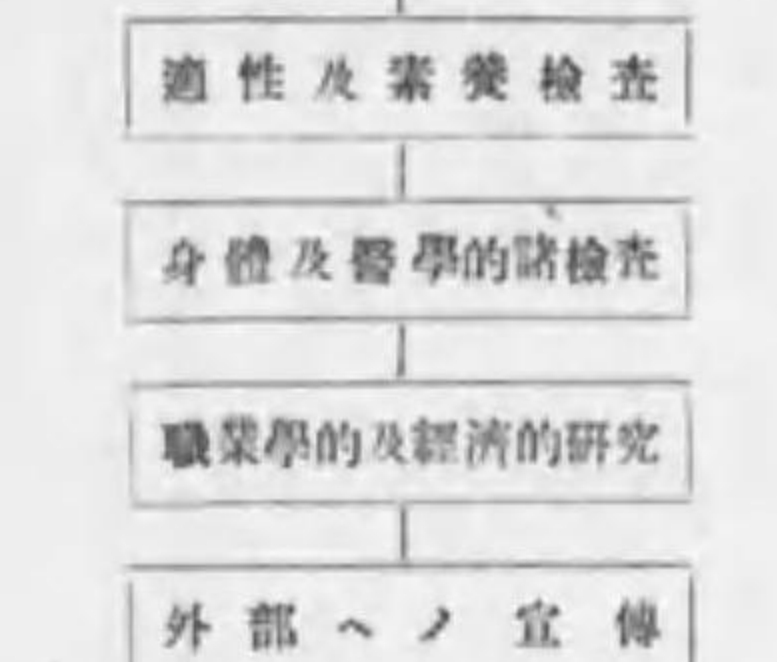 適性及素養檢査
身體及醫學的諸檢査
職業學的及經濟的硏究
外部ヘノ宣傳